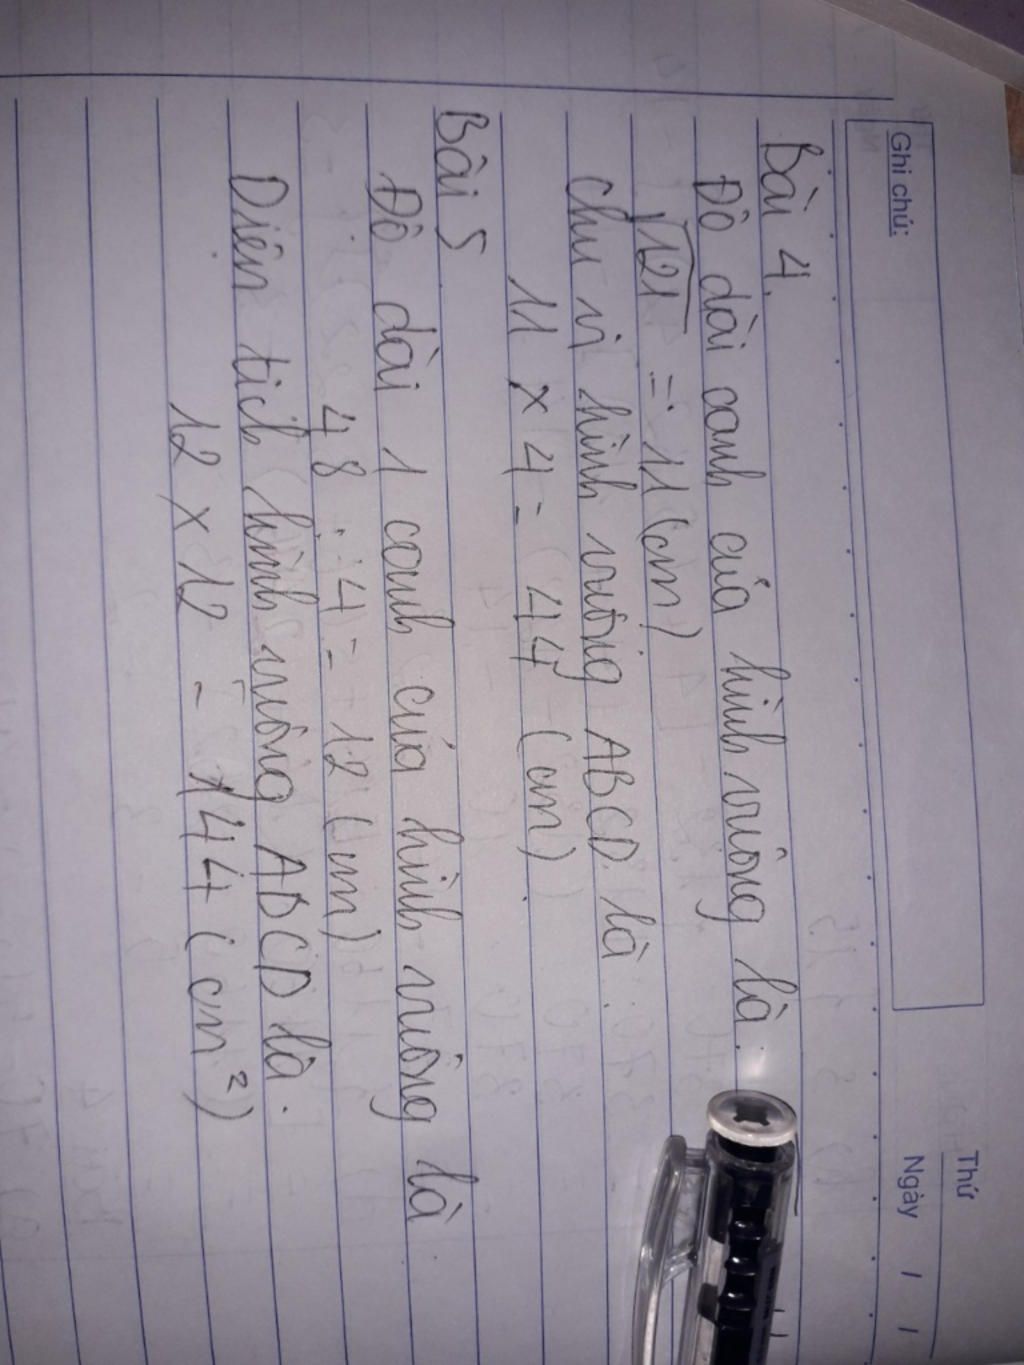 Ghi chú:
Thứ
Ngày / /
Bài 4.
Độ dài cạnh của hình vuông là.
√121 = 11 (cm)
Chu vi hình vuông ABCD là:
11 x 4 = 44 (cm)
Bài 5
Độ dài 1 cạnh của hình vuông là
48 : 4 = 12 (cm)
Diện tích hình vuông ABCD là.
12 x 12 = 144 (cm²)